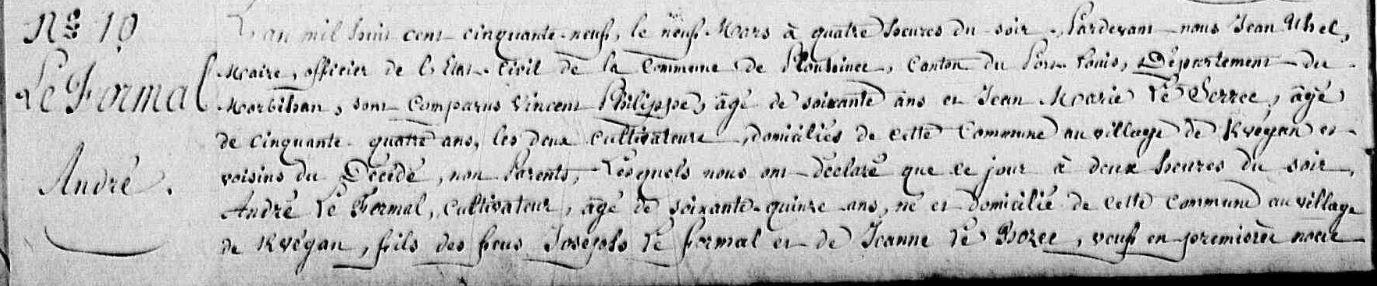 N° 19
Le Formal
André.
L'an mil huit cent cinquante-neuf, le neuf Mars à quatre heures du soir, Pardevant nous Jean Uhel,
Maire, officier de l'Etat-Civil de la Commune de Plouhinec, Canton du Port Louis, Département du
Morbihan, sont comparus Vincent Philippe, âgé de soixante ans et Jean Marie Le Serrec, âgé
de cinquante-quatre ans, les deux cultivateurs, domiciliés de cette Commune au village de Kvégan et
voisins du Décédé, non Parents, Lesquels nous ont déclaré que ce jour à deux heures du soir,
André Le Formal, cultivateur, âgé de soixante-quinze ans, né et domicilié de cette commune au village
de Kvégan, fils des feus Joseph Le formal et de Jeanne Le Bozec, veuf en première noce